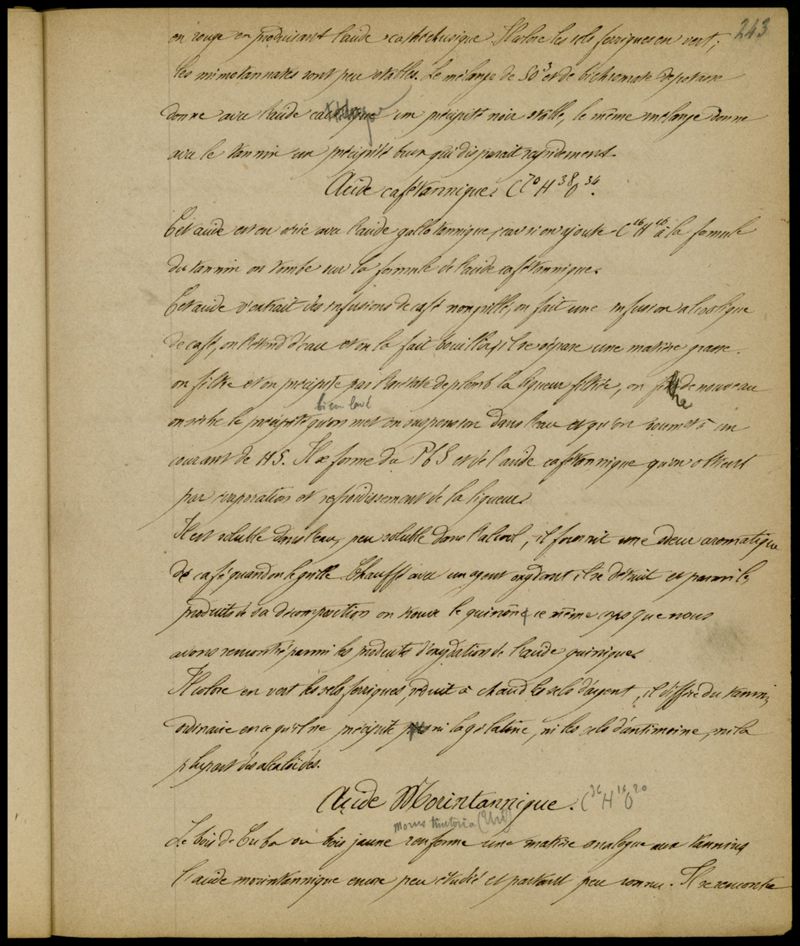 243
en rouge en produisant l'acide cachoutique. Il colore les sels ferriques en vert;
les mimotannates sont peu stables. Le mélange de SO³ et de bichromate de potasse
donne avec l'acide un précipité noir stable, le même mélange donne
avec le tannin un précipité brun qui disparait rapidement.
Acide cafétannique. C⁷⁰H³⁸O³⁴.
Cet acide est en série avec l'acide gallotannique, car si on ajoute C¹⁶H¹⁶ à la formule
du tannin on tombe sur la formule de l'acide cafétannique.
Cet acide s'extrait des infusions de café non grillé, on fait une infusion alcoolique
de café, on l'étend d'eau et on la fait bouillir, il se sépare une matière grasse.
on filtre et on précipite par l'acétate de plomb la liqueur filtrée, on filtre de nouveau
bien lavé
on sèche le précipité qu'on met en suspension dans l'eau et qu'on soumet à un
courant de HS. Il se forme du PbS et de l'acide cafétannique qu'on obtient
par évaporation et refroidissement de la liqueur.
Il est soluble dans l'eau, peu soluble dans l'alcool, il fournit une odeur aromatique
de café quand on le grille. Chauffé avec un agent oxydant il se détruit et parmi les
produits de sa décomposition on trouve le quinone, ce même corps que nous
avons rencontré parmi les produits d'oxydation de l'acide quinique.
Il colore en vert les sels ferriques, réduit à chaud les sels d'argent, il diffère du tannin
ordinaire en ce qu'il ne précipite ni la gélatine, ni les sels d'antimoine, ni la
plupart des alcaloïdes.
Acide Morintannique. C³⁶H¹⁶O²⁰
morus tinctoria (Urt)
Le bois de Cuba ou bois jaune renferme une matière analogue aux tannins,
l'acide morintannique encore peu étudié et partant peu connu. Il se rencontre